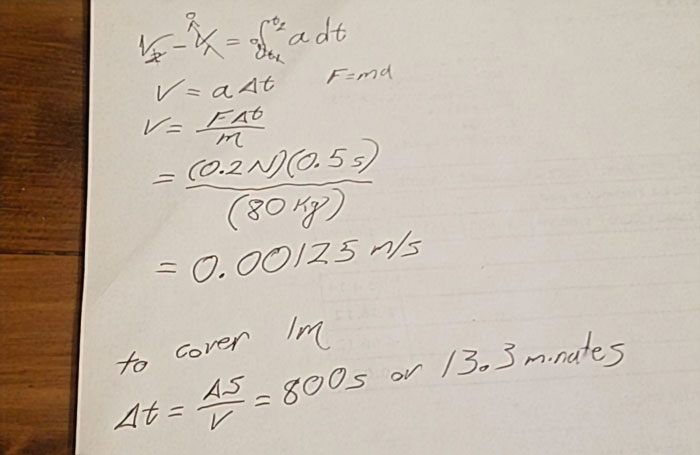 V₂ - V₁ = ∫ a dt
V = a Δt F = ma
V = FΔt / m
= (0.2 N)(0.5 s) / (80 Kg)
= 0.00125 m/s
to cover 1m
Δt = ΔS / V = 800s or 13.3 minutes